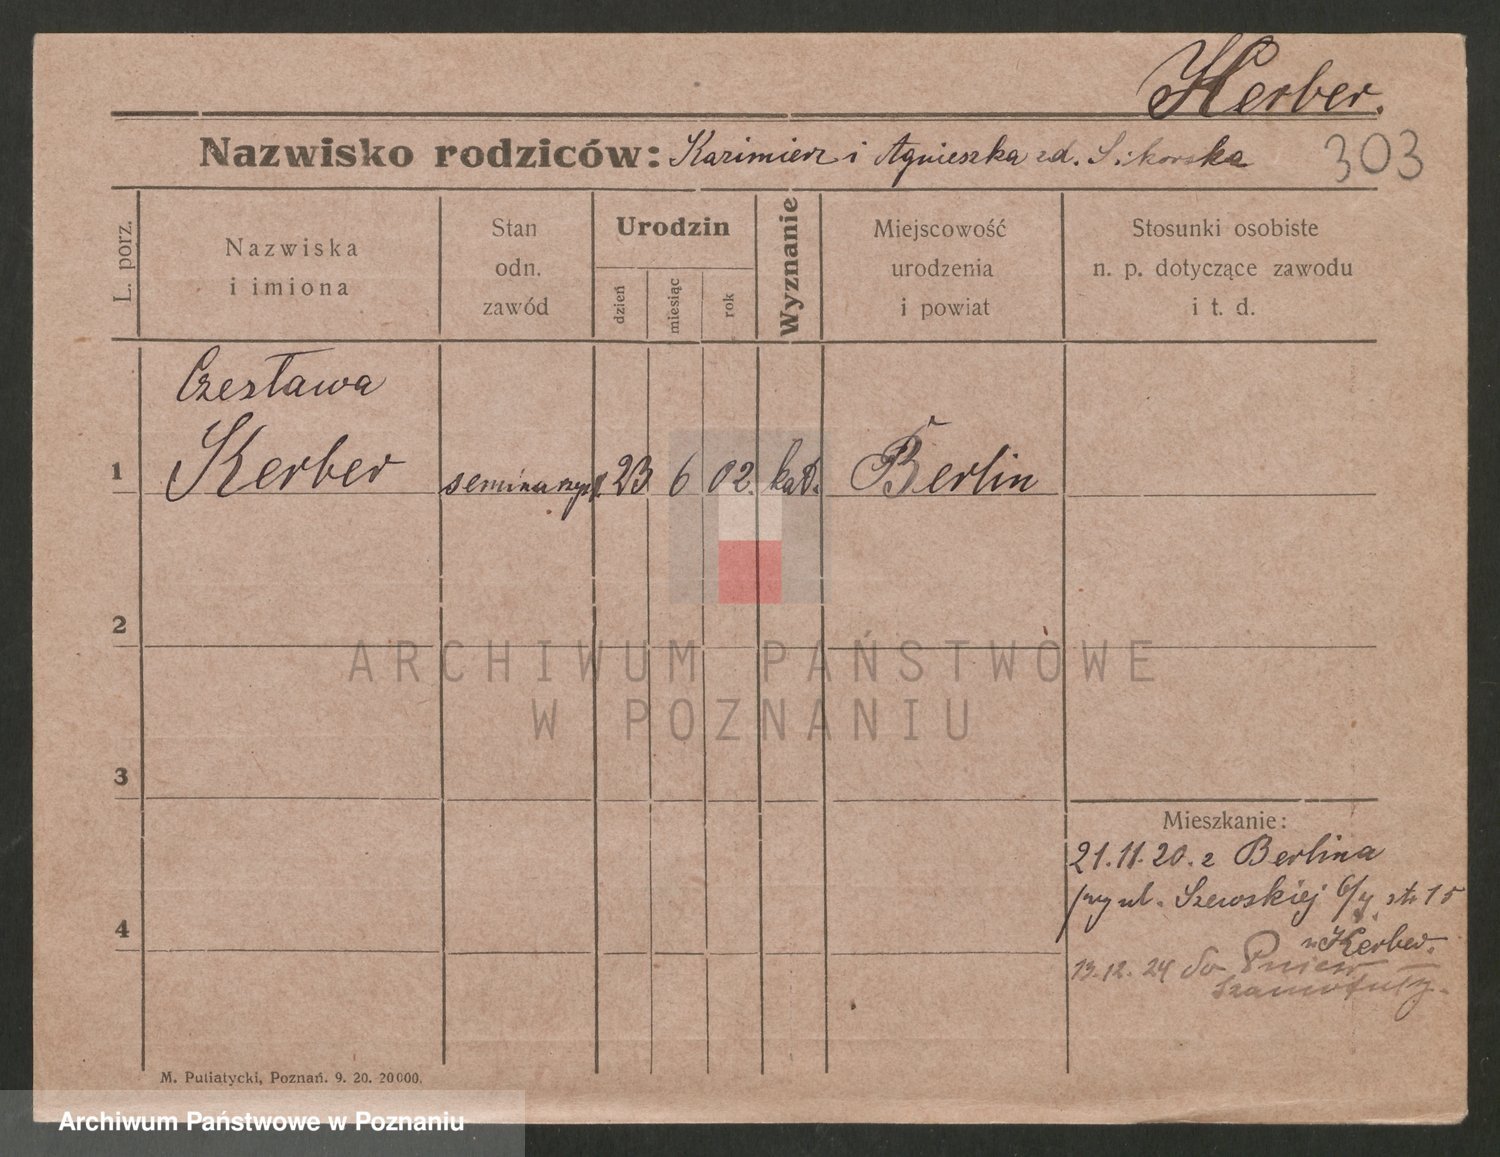 Kerber.
Nazwisko rodziców: Kazimierz i Agnieszka zd. Sikorska
303
L. porz.
Nazwiska
i imiona
Stan
odn.
zawód
Urodzin
dzień
miesiąc
rok
Wyznanie
Miejscowość
urodzenia
i powiat
Stosunki osobiste
n. p. dotyczące zawodu
i t. d.
Czesława
1 Kerber 23 6 02. kat. Berlin
2
ARCHIWUM PAŃSTWOWE
W POZNANIU
3
Mieszkanie:
21.11.20. z Berlina
przy ul. Szewskiej 15
4
u Kerber.
13.12.24 do Pniew
Szamotuły.
M. Putiatycki, Poznań. 9. 20. 20000.
Archiwum Państwowe w Poznaniu